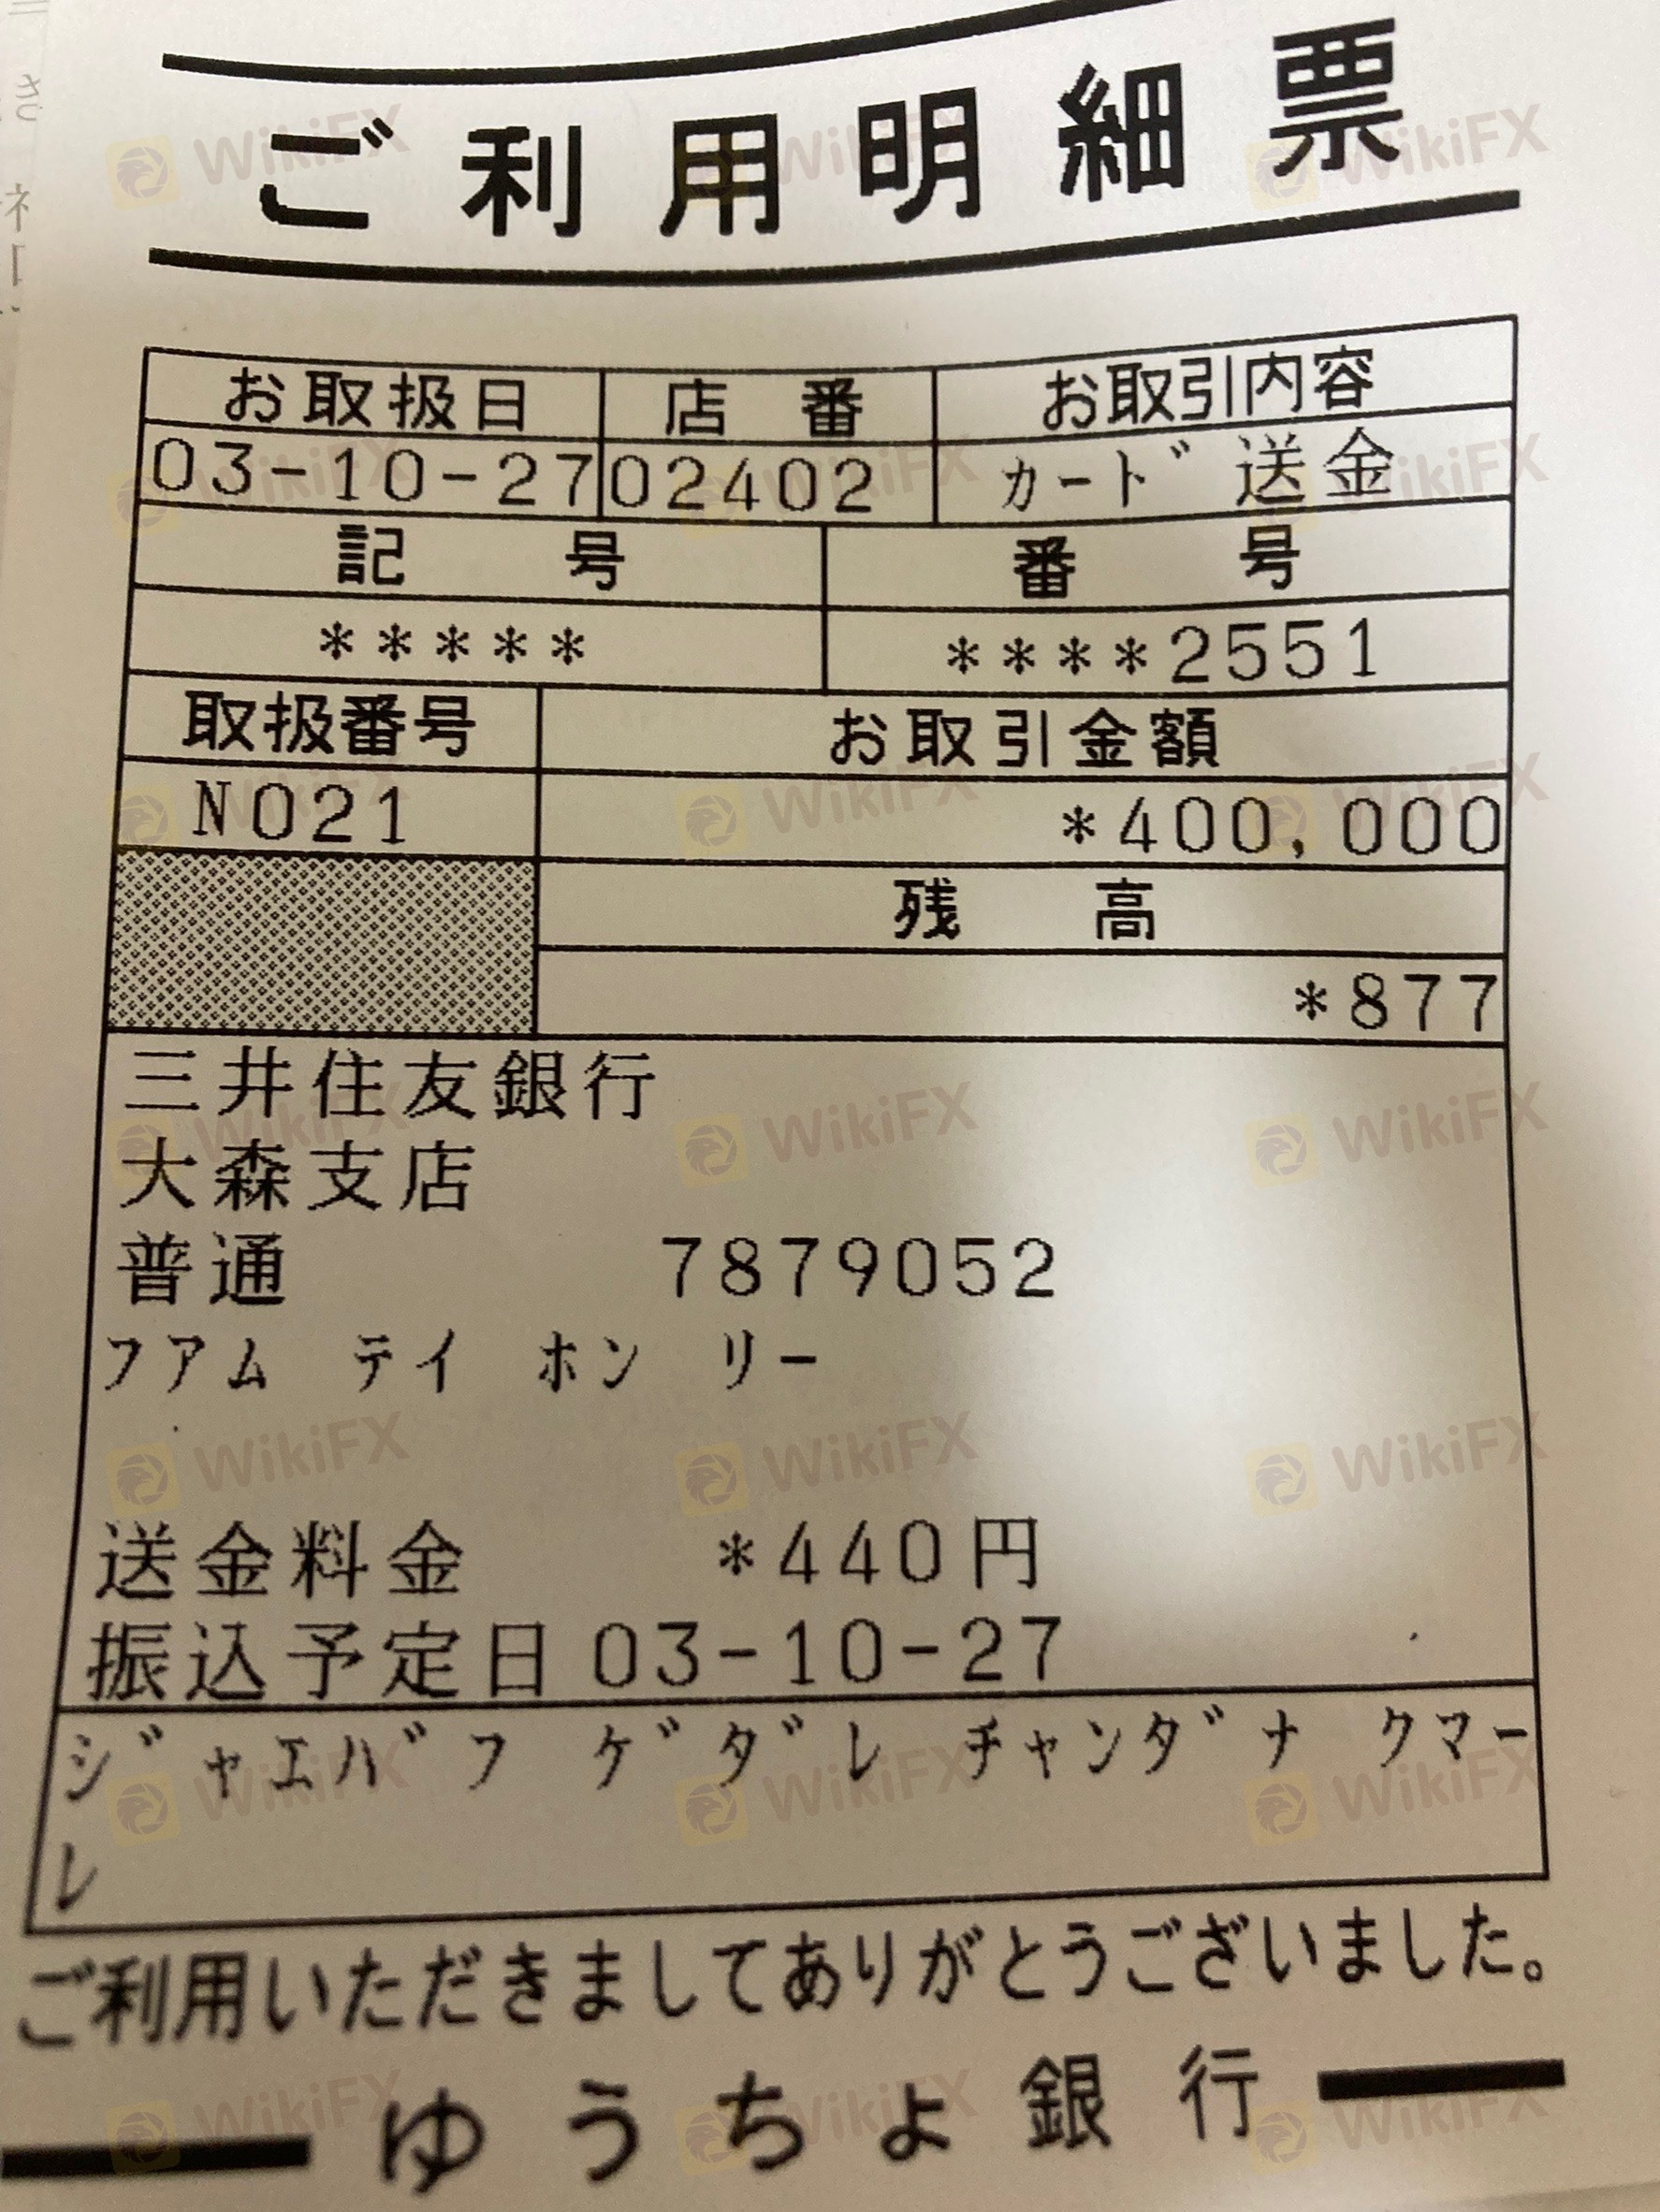 ご利用明細票
お取扱日 店番 お取引内容
03-10-27 02402 カード送金
記号 番号
***** ****2551
取扱番号 お取引金額
N021 *400,000
残高
*877
三井住友銀行
大森支店
普通 7879052
フアム テイ ホン リー
送金料金 *440円
振込予定日03-10-27
ジャエバフ ゲダレ チャンダナ クマー
レ
ご利用いただきましてありがとうございました。
ゆうちょ銀行
WikiFX